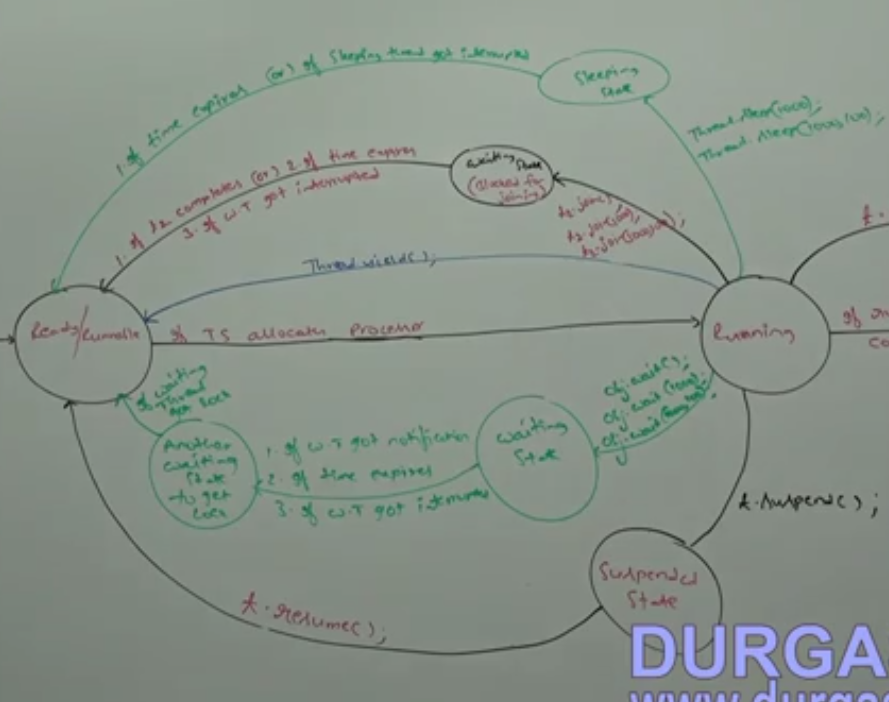 1. If time expires (or) if sleeping thread got interrupted
Sleeping
state
Thread.sleep(1000);
Thread.sleep(1000,100);
1. If t2 completes (or) 2. if time expires
3. If W.T got interrupted
waiting state
(Blocked for
joining)
t2.join();
t2.join(1000);
t2.join(1000,100);
Thread.yield();
Ready/Runnable
If TS allocates Processor
Running
t.
If
co
If waiting
Thread
got lock
Another
waiting
state
to get
lock
1. If W.T got notification
2. If time expires
3. If W.T got interrupted
waiting
state
obj.wait();
obj.wait(1000);
t.suspend();
Suspended
State
t.resume();
DURGA
www.durga